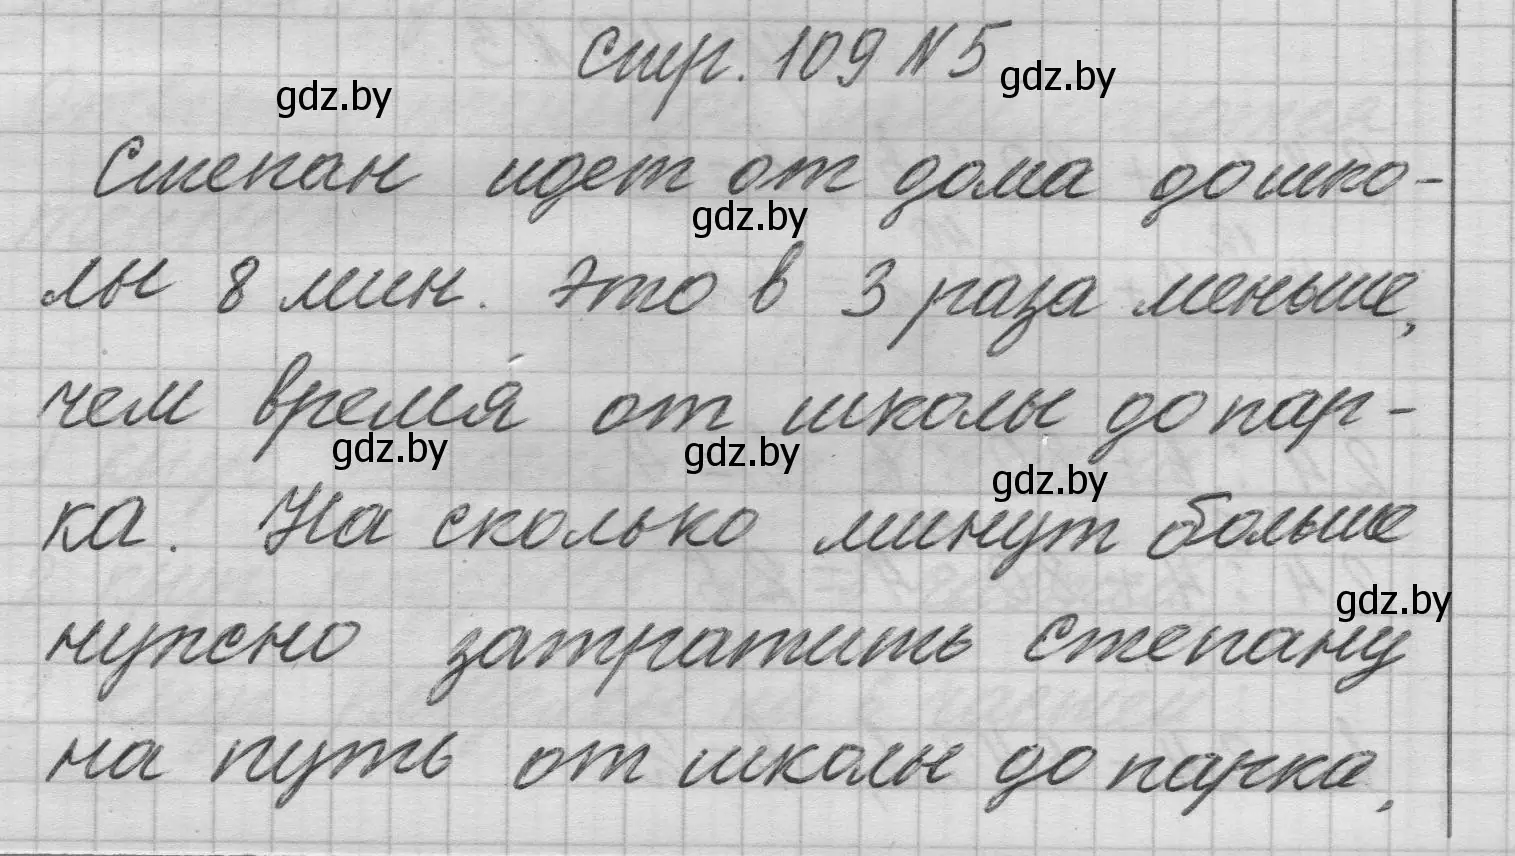 стр. 109 №5
gdz.by gdz.by
Степан идет от дома до шко-
gdz.by
лы 8 мин. Это в 3 раза меньше,
чем время от школы до пар-
gdz.by gdz.by gdz.by
ка. На сколько минут больше
gdz.by
нужно затратить Степану
на путь от школы до парка,